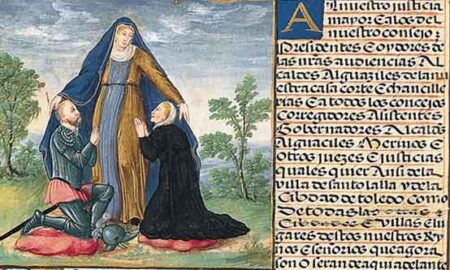 A nuestro justicia
mayor Ealos del
nuestro consejo;
Presidentes Eoydores
de las nras audiencias Al
caldes Alguaziles de la nu
estra casa corte Echancille
rias Ea todos los concejos
Corregidores Asistentes
Gobernadores Alcaldes
Alguaciles Merinos E
otros juezes E justicias
quales quier Ansi de la
villa de santolalla y de la
Cibdad de toledo Como
de todas las otras
Cibdades E villas E lu
gares de estos nuestros Rey
nos E señorios que agora
son O seran de aqui adelante